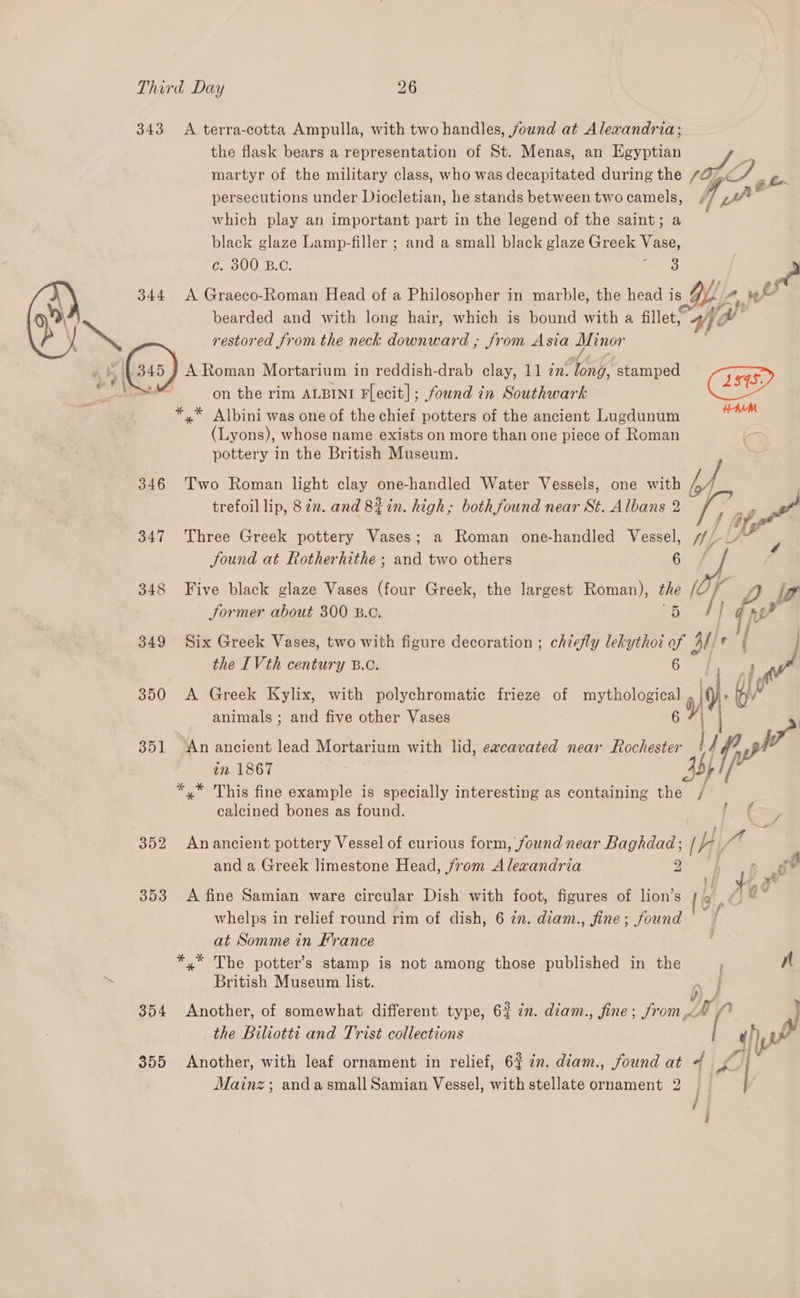 Third Day 26
343 A terra-cotta Ampulla, with two handles, found at Alexandria;
the flask bears a representation of St. Menas, an Egyptian
martyr of the military class, who was decapitated during the
persecutions under Diocletian, he stands between two camels,
which play an important part in the legend of the saint; a
black glaze Lamp-filler; and a small black glaze Greek Vase,
c. 300 B.C. 3
344 A Graeco-Roman Head of a Philosopher in marble, the head is
bearded and with long hair, which is bound with a fillet,
restored from the neck downward; from Asia Minor
345 A Roman Mortarium in reddish-drab clay, 11 in. long, stamped
on the rim ALBINI F[ecit]; found in Southwark
*⁎* Albini was one of the chief potters of the ancient Lugdunum
(Lyons), whose name exists on more than one piece of Roman
pottery in the British Museum.
346 Two Roman light clay one-handled Water Vessels, one with
trefoil lip, 8 in. and 8¾ in. high; both found near St. Albans 2
347 Three Greek pottery Vases; a Roman one-handled Vessel,
found at Rotherhithe; and two others 6
348 Five black glaze Vases (four Greek, the largest Roman), the
former about 300 B.C. 5
349 Six Greek Vases, two with figure decoration; chiefly lekythoi of
the IVth century B.C. 6
350 A Greek Kylix, with polychromatic frieze of mythological
animals; and five other Vases 6
351 An ancient lead Mortarium with lid, excavated near Rochester
in 1867
*⁎* This fine example is specially interesting as containing the
calcined bones as found.
352 An ancient pottery Vessel of curious form, found near Baghdad;
and a Greek limestone Head, from Alexandria 2
353 A fine Samian ware circular Dish with foot, figures of lion's
whelps in relief round rim of dish, 6 in. diam., fine; found
at Somme in France
*⁎* The potter's stamp is not among those published in the
British Museum list.
354 Another, of somewhat different type, 6¾ in. diam., fine; from
the Biliotti and Trist collections
355 Another, with leaf ornament in relief, 6¾ in. diam., found at
Mainz; and a small Samian Vessel, with stellate ornament 2